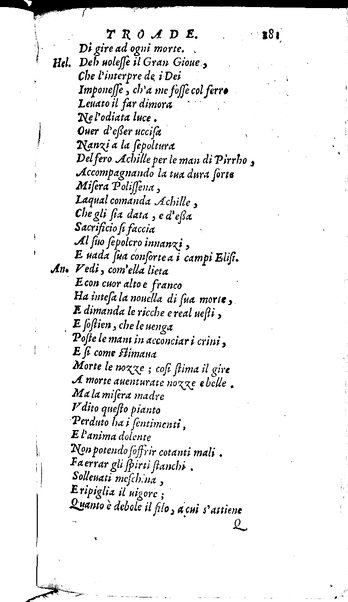 TROADE. 281
Di gire ad ogni morte.
Hel. Deh uolesse il Gran Gioue,
Che l'interpre de i Dei
Imponesse, ch'a me fosse col ferro
Leuato il far dimora
Ne l'odiata luce.
Ouer d'esser uccisa
Nanzi a la sepoltura
Del fero Achille per le man di Pirrho,
Accompagnando la tua dura sorte
Misera Polissena,
Laqual comanda Achille,
Che gli sia data, e d'essa
Sacrificio si faccia
Al suo sepolcro innanzi,
E uada sua consorte a i campi Elisi.
An. Vedi, com'ella lieta
E con cuor alto e franco
Ha intesa la nouella di sua morte,
E dimanda le ricche e real uesti,
E sostien, che le uenga
Poste le mani in acconciar i crini,
E si come stimaua
Morte le nozze; cosi stima il gire
A morte auenturate nozze e belle.
Ma la misera madre
Vdito questo pianto
Perduto ha i sentimenti,
E l'anima dolente
Non potendo soffrir cotanti mali.
Fa errar gli spirti stanchi.
Solleuati meschina,
E ripiglia il uigore;
Quanto è debole il filo, a cui s'attiene
Q